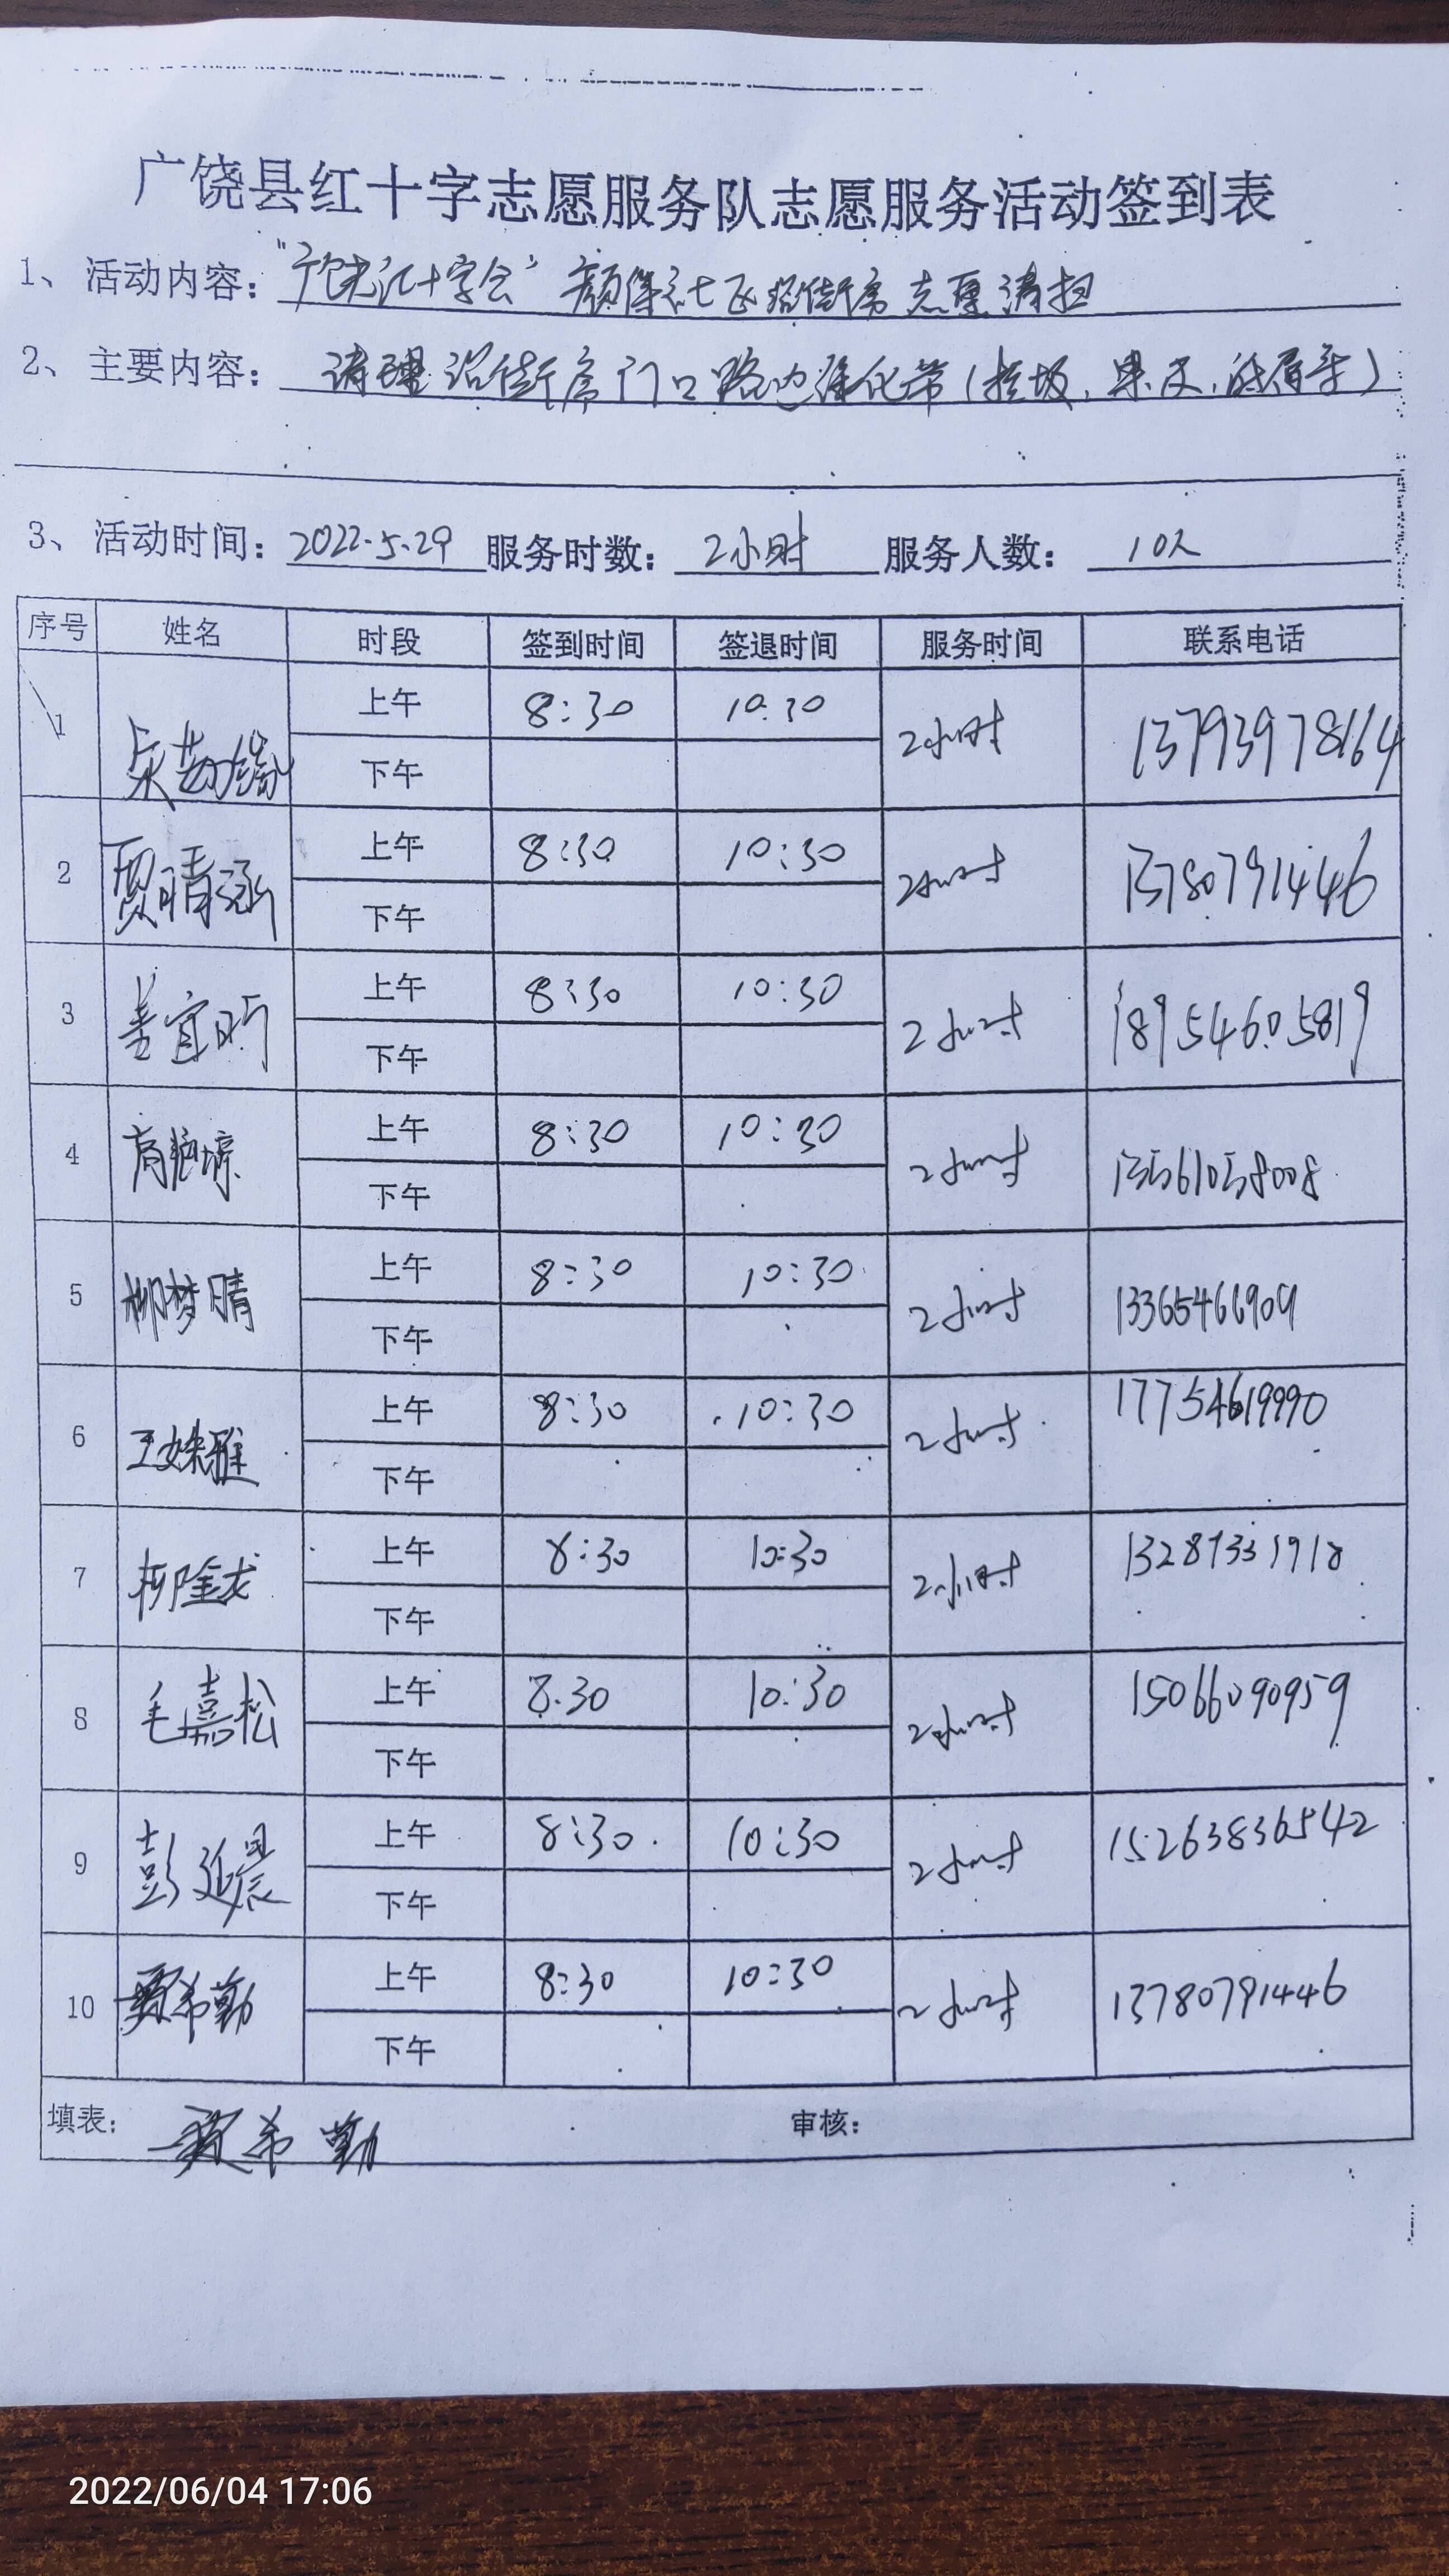 广饶县红十字志愿服务队志愿服务活动签到表
1、活动内容：“广饶红十字会” 颜徐社区沿街房志愿清扫
2、主要内容：清理沿街房门口路边绿化带（垃圾、果皮、纸屑等）
3、活动时间：2022.5.29 服务时数：2小时 服务人数：10人
序号 姓名 时段 签到时间 签退时间 服务时间 联系电话
1 上午 8:30 10:30 2小时 13793978164
下午
2 贾晴涵 上午 8:30 10:30 2小时 13780791446
下午
3 上午 8:30 10:30 2小时 18954605819
下午
4 上午 8:30 10:30 2小时 13561058008
下午
5 柳梦晴 上午 8:30 10:30 2小时 13365466909
下午
6 王姝雅 上午 8:30 10:30 2小时 17754619990
下午
7 柳金龙 上午 8:30 10:30 2小时
下午
8 毛嘉松 上午 8.30 10:30 2小时 15066090959
下午
9 彭延晨 上午 8:30 10:30 2小时 15263836542
下午
10 贾希勤 上午 8:30 10:30 2小时 13780791446
下午
填表：贾希勤 审核：
2022/06/04 17:06